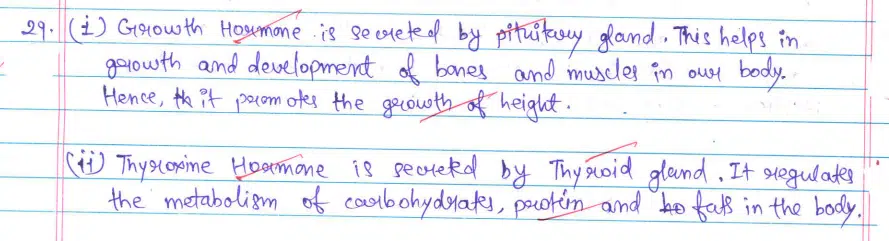 29. (i) Growth Hormone is secreted by pituitary gland. This helps in
growth and development of bones and muscles in our body.
Hence, it promotes the growth of height.
(ii) Thyroxine Hormone is secreted by Thyroid gland. It regulates
the metabolism of carbohydrates, protein and fats in the body.